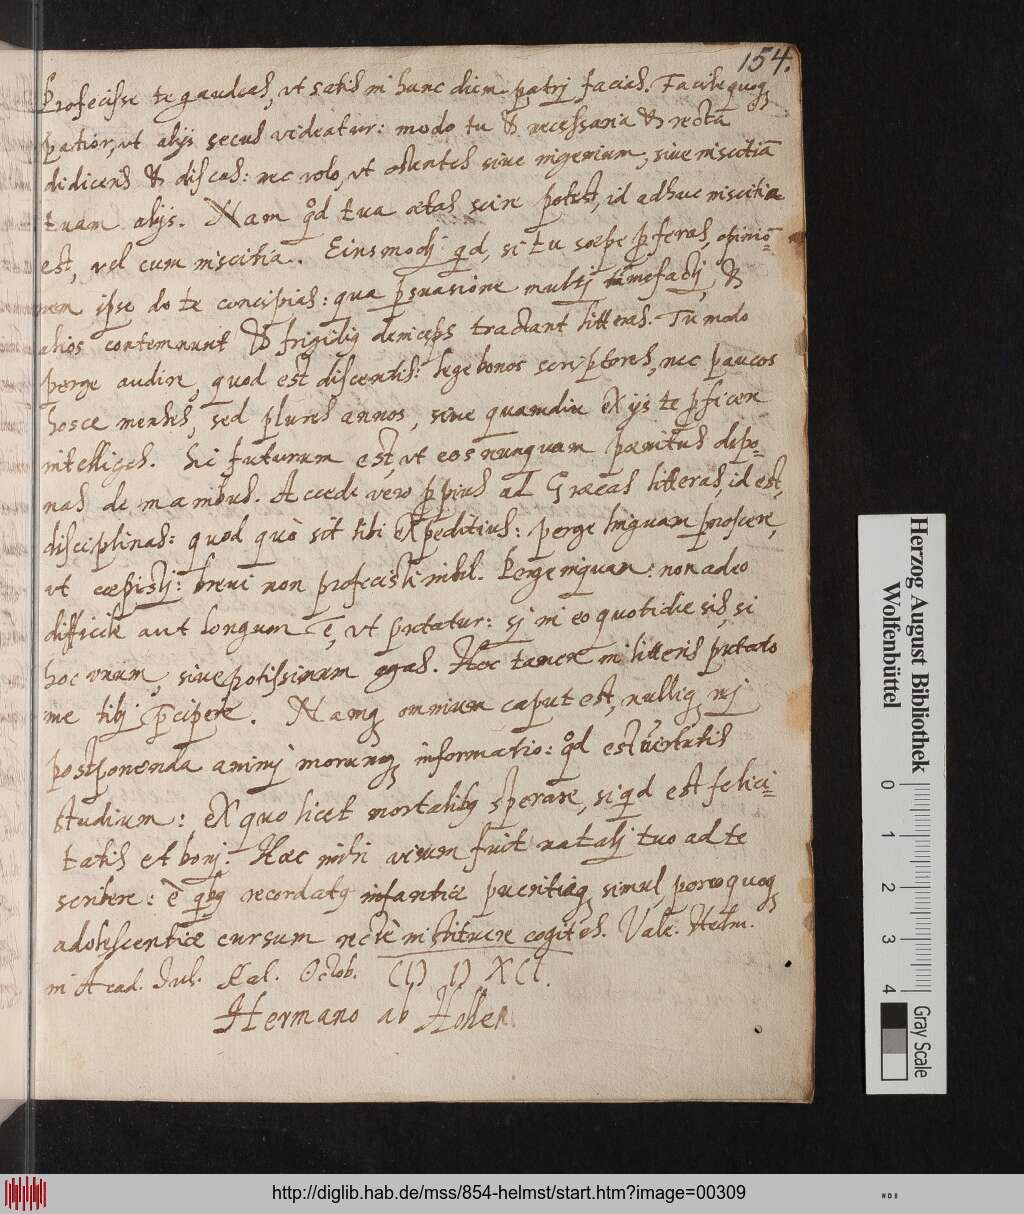 154.
Profecisse te gaudeas, ut satis in hunc diem patrj facias. Facile quoq₃
patior, ut alijs secus videatur: modo tu & necessaria & recta
didiceris & discas: nec volo, ut ostentes sive ingenium, sive inscitiã
tuam alijs. Nam qd tua ætas scire potest, id adhuc inscitia
est, vel cum inscitia. Eiusmodj qd, si tu sæpe pferas, opinio-
nem ipse de te concipias: qua psuasione multj tumefactj, &
alios contemnunt & frigidiq deinceps tractant litteras. Tu modo
perge audire, quod est discentis: lege bonos scriptores, nec paucos
hosce menses, sed plures annos, sive quamdiu ex ijs te pficere
intelliges. Sic futurum est, ut eos nunquam pœnitus depo-
nas de manibus. Accede vero ppius ad Græcas litteras, id est,
disciplinas: quod quò sit tibi expeditius: perge linguam pnoscere,
ut cœpistj: brevi non profecisti nihil. Perge inquam: non adeo
difficile aut longum ẽ, ut putatur: sj in eo quotidie sis, si
hoc unum, sive potissimum agas. Hæc tamen in litteris putato
me tibj p̄cipere. Namq₃ omnium caput est, nulliq₃ rej
postponenda animj morumq₃ informatio: qd est virtutis
studium: ex quo licet mortalibq sperare, si qd est felici-
tatis et bonj. Hæc mihi visum fuit natalj tuo ad te
scribere: ẽ qbq recordatq infantiæ pueritiæq₃ simul, porro quoq₃
adolescentiæ cursum rectè instituere cogites. Vale. Helm.
in Acad. Jul. Kal. Octob. CIↃ IↃ XCI.
Hermano ab Hollen
Herzog August Bibliothek
Wolfenbüttel
0 1 2 3 4
Gray Scale
http://diglib.hab.de/mss/854-helmst/start.htm?image=00309
WDB